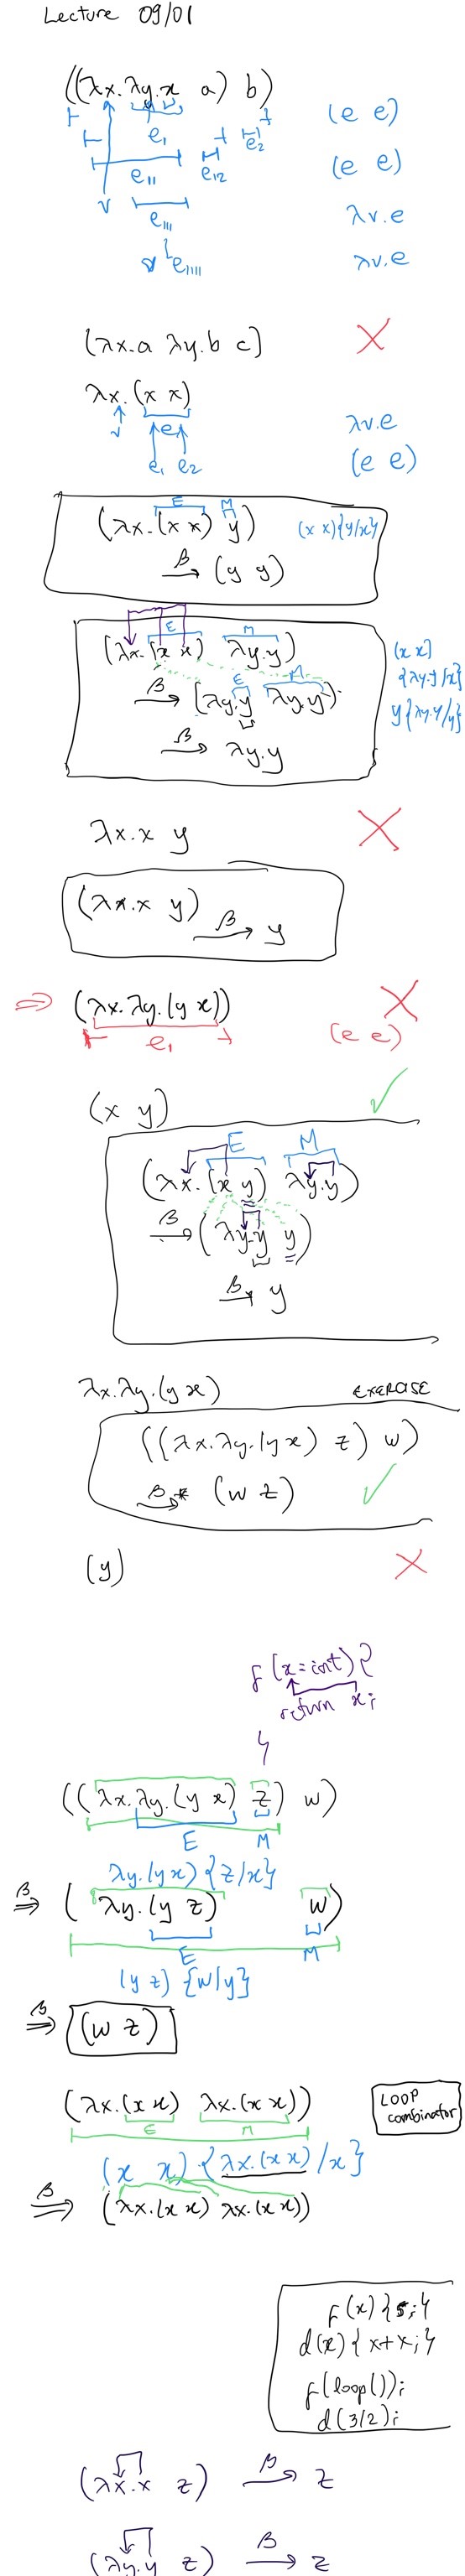 Lecture 09/01
((λx.λy.x a) b)
(e e)
e1 e2
(e e)
e11 e12
v
λv.e
e111
v e1111
λv.e
(λx.a λy.b c)
λx.(x x)
v e
λv.e
e1 e2
(e e)
E M
(λx.(x x) y)
(x x){y/x}
β→ (y y)
E M
(λx.(x x) λy.y)
(x x)
{λy.y/x}
E M
β→ (λy.y λy.y)
y{λy.y/y}
β→ λy.y
λx.x y
(λx.x y)
β→ y
⇒ (λx.λy.(y x))
e1
(e e)
(x y)
E M
(λx.(x y) λy.y)
β→ (λy.y y)
β→ y
λx.λy.(y x) EXERCISE
((λx.λy.(y x) z) w)
β→* (w z)
(y)
f (x=int) {
return x;
}
((λx.λy.(y x) z) w)
E M
λy.(y x) {z/x}
β⇒ (λy.(y z) w)
E M
(y z) {w/y}
β⇒ (w z)
(λx.(x x) λx.(x x))
LOOP
combinator
E M
(x x) {λx.(x x)/x}
β⇒ (λx.(x x) λx.(x x))
f(x) {5;}
d(x) {x+x;}
f(loop());
d(3/2);
(λx.x z) β→ z
(λy.y z) β→ z